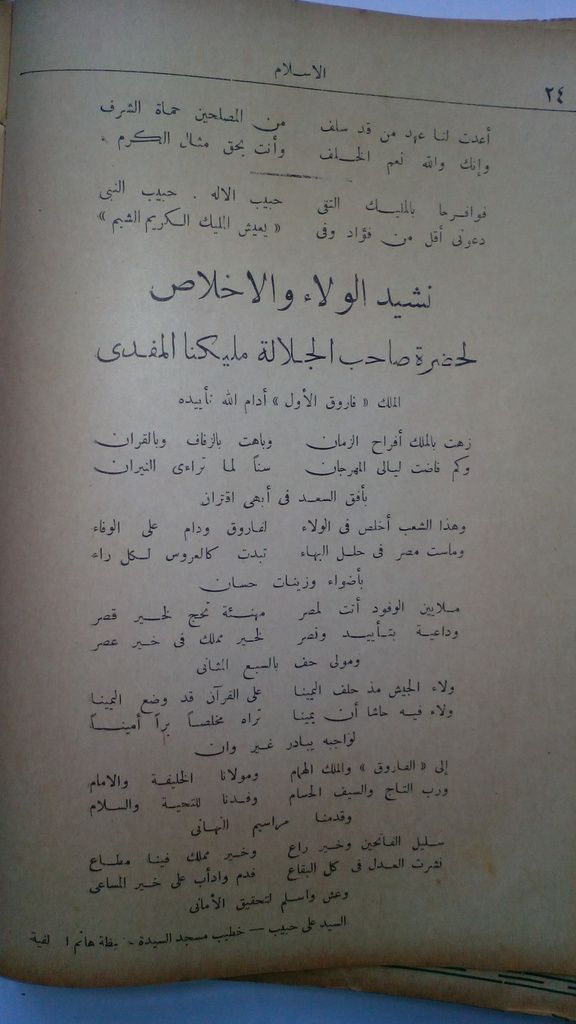 الاسلام
٢٤
أعدت لنا عهد من قد سلف من المصلحين حماة الشرف
وإنك والله نعم الخلف وأنت بحق مثال الكرم .
فوافرحا بالمليك التقى حبيب الاله . حبيب النبى
دعونى أقل من فؤاد وفى « يعيش المليك الكريم الشيم »
نشيد الولاء والاخلاص
لحضرة صاحب الجلالة مليكنا المفدى
الملك « فاروق الأول » أدام الله تأييده
زهت بالملك أفراح الزمان وباهت بالزفاف وبالقران
وكم فاضت ليالى المهرجان سناً لما تراءى النيران
بأفق السعد فى أبهى اقتران
وهذا الشعب أخلص فى الولاء لفاروق ودام على الوفاء
وماست مصر فى حلل البهاء تبدت كالعروس لكل راء
بأضواء وزينات حسان
ملايين الوفود أتت لمصر مهنئة تحج لخير قصر
وداعية بتأييد ونصر لخير مملك فى خير عصر
ومولى حف بالسبع المثانى
ولاء الجيش مذ حلف اليمينا على القرآن قد وضع اليمينا
ولاء فيه حاشا أن يمينا تراه مخلصاً براً أميناً
لواجبه يبادر غير وان
إلى « الفاروق » والملك الهمام ومولانا الخليفة والامام
ورب التاج والسيف الحسام وفدنا للتحية والسلام
وقدمنا مراسيم التهانى
سليل الفاتحين وخير راع وخير مملك فينا مطاع
نشرت العدل فى كل البقاع فدم وادأب على خير المساعى
وعش واسلم لتحقيق الأمانى
السيد على حبيب — خطيب مسجد السيدة هانم